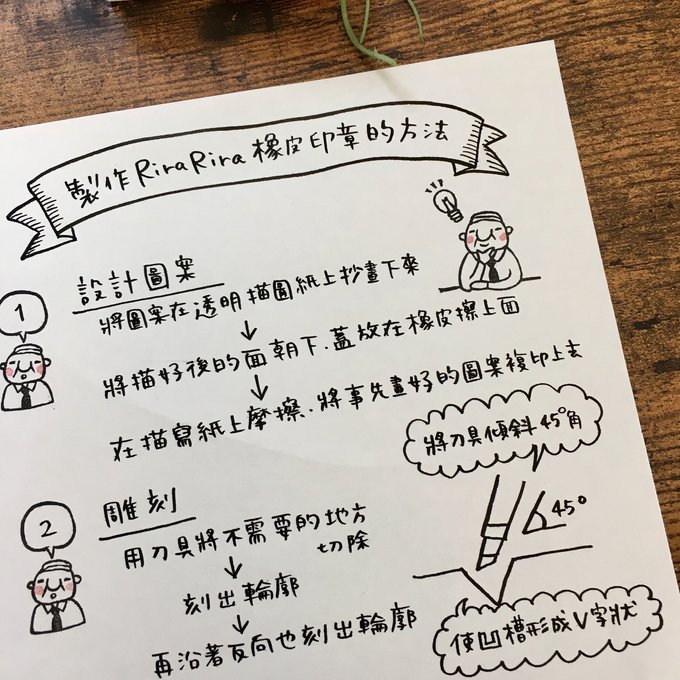 製作RiraRira橡皮印章的方法
1
設計圖案
將圖案在透明描圖紙上抄畫下來
↓
將描好後的面朝下、蓋放在橡皮擦上面
↓
在描寫紙上摩擦、將事先畫好的圖案複印上去
2
雕刻
用刀具將不需要的地方
切除
↓
刻出輪廓
↓
再沿著反向也刻出輪廓
將刀具傾斜45°角
45°
使凹槽形成V字狀